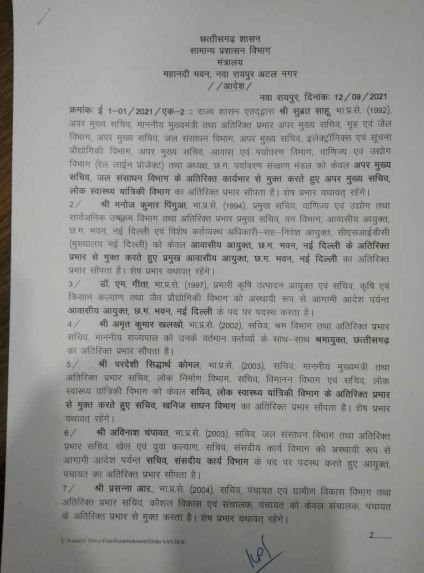 छत्तीसगढ़ शासन
सामान्य प्रशासन विभाग
मंत्रालय
महानदी भवन, नवा रायपुर अटल नगर
//आदेश/
नवा रायपुर, दिनांकः 12/09/2021
क्रमांकः ई 1-01/2021/एक-2 = राज्य शासन एतद्द्वारा श्री सुब्रत साहू, भा.प्र.से. (1992),
अपर मुख्य सचिव, माननीय मुख्यमंत्री तथा अतिरिक्त प्रभार अपर मुख्य सचिव, गृह एवं जेल
विभाग, अपर मुख्य सचिव, जल संसाधन विभाग, अपर मुख्य सचिव, इलेक्ट्रॉनिक्स एवं सूचना
प्रौद्योगिकी विभाग, अपर मुख्य सचिव, आवास एवं पर्यावरण विभाग, वाणिज्य एवं उद्योग
विभाग (रेल लाईन प्रोजेक्ट) तथा अध्यक्ष, छ.ग. पर्यावरण संरक्षण मंडल को केवल अपर मुख्य
सचिव, जल संसाधन विभाग के अतिरिक्त कार्यभार से मुक्त करते हुए अपर मुख्य सचिव,
लोक स्वास्थ्य यांत्रिकी विभाग का अतिरिक्त प्रभार सौंपता है। शेष प्रभार यथावत् रहेंगे।
2/ श्री मनोज कुमार पिंगुआ, भा.प्र.से. (1994), प्रमुख सचिव, वाणिज्य एवं उद्योग तथा
सार्वजनिक उपक्रम विभाग तथा अतिरिक्त प्रभार प्रमुख सचिव, वन विभाग, आवासीय आयुक्त,
छ.ग. भवन, नई दिल्ली एवं विशेष कर्तव्यस्थ अधिकारी-सह-निवेश आयुक्त, सीएसआईडीसी
(मुख्यालय नई दिल्ली) को केवल आवासीय आयुक्त, छ.ग. भवन, नई दिल्ली के अतिरिक्त
प्रभार से मुक्त करते हुए प्रमुख आवासीय आयुक्त, छ.ग. भवन, नई दिल्ली का अतिरिक्त
प्रभार सौंपता है। शेष प्रभार यथावत् रहेंगे।
3/ डॉ. एम. गीता, भा.प्र.से. (1997), प्रभारी कृषि उत्पादन आयुक्त एवं सचिव, कृषि एवं
किसान कल्याण तथा जैव प्रौद्योगिकी विभाग को अस्थायी रूप से आगामी आदेश पर्यन्त
आवासीय आयुक्त, छ.ग. भवन, नई दिल्ली के पद पर पदस्थ करता है।
4/ श्री अमृत कुमार खलखो, भा.प्र.से. (2002), सचिव, श्रम विभाग तथा अतिरिक्त प्रभार
सचिव, माननीय राज्यपाल को उनके वर्तमान कर्तव्यों के साथ-साथ श्रमायुक्त, छत्तीसगढ़
का अतिरिक्त प्रभार सौंपता है।
5/ श्री परदेशी सिद्धार्थ कोमल, भा.प्र.से. (2003), सचिव, माननीय मुख्यमंत्री तथा
अतिरिक्त प्रभार सचिव, लोक निर्माण विभाग, सचिव, विमानन विभाग एवं सचिव, लोक
स्वास्थ्य यांत्रिकी विभाग को केवल सचिव, लोक स्वास्थ्य यांत्रिकी विभाग के अतिरिक्त प्रभार
से मुक्त करते हुए सचिव, खनिज साधन विभाग का अतिरिक्त प्रभार सौंपता है। शेष प्रभार
यथावत् रहेंगे।
6/ श्री अविनाश चंपावत, भा.प्र.से. (2003), सचिव, जल संसाधन विभाग तथा अतिरिक्त
प्रभार सचिव, खेल एवं युवा कल्याण, सचिव, संसदीय कार्य विभाग को अस्थायी रूप से
आगामी आदेश पर्यन्त सचिव, संसदीय कार्य विभाग के पद पर पदस्थ करते हुए आयुक्त,
पंचायत का अतिरिक्त प्रभार सौंपता है।
7/ श्री प्रसन्ना आर., भा.प्र.से. (2004), सचिव, पंचायत एवं ग्रामीण विकास विभाग तथा
अतिरिक्त प्रभार सचिव, कौशल विकास एवं संचालक, पंचायत को केवल संचालक, पंचायत
के अतिरिक्त प्रभार से मुक्त करता है। शेष प्रभार यथावत् रहेंगे।
2........